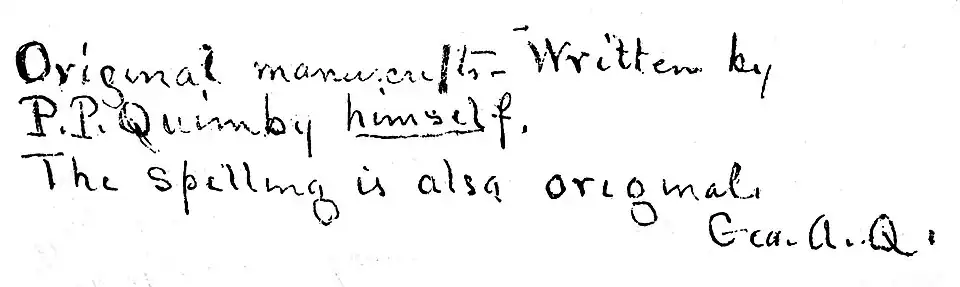 Original manuscripts - Written by
P.P. Quimby himself.
The spelling is also original.
Geo. A. Q.